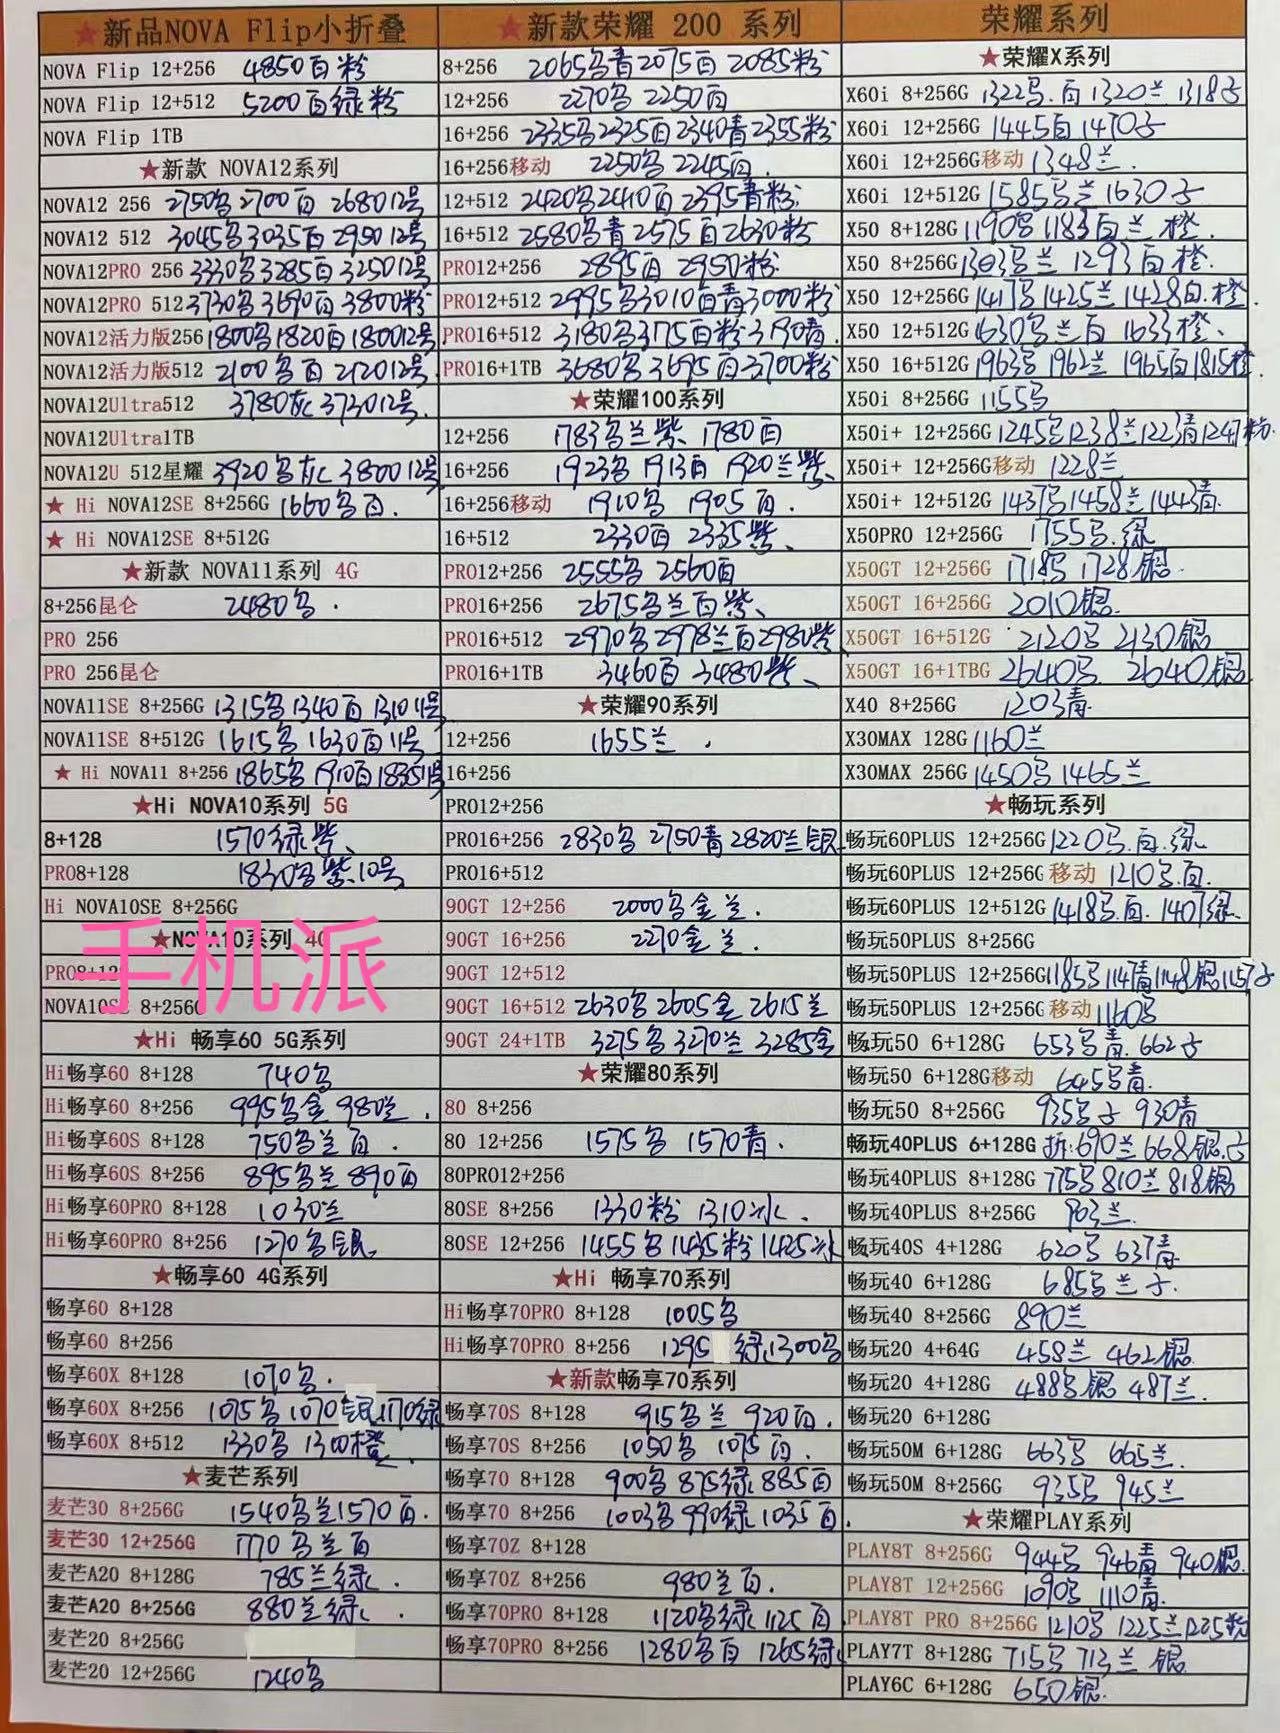 ★新品NOVA Flip小折叠
NOVA Flip 12+256 4850百粉
NOVA Flip 12+512 5200百绿粉
NOVA Flip 1TB
★新款 NOVA12系列
NOVA12 256 2750名 2700百 2680 12号
NOVA12 512 3045名3035百2950 12号
NOVA12PRO 256 3330名3285百3250 12号
NOVA12PRO 512 3730名3690百3800粉
NOVA12活力版256 1800名1820百1800 12号
NOVA12活力版512 2100名百 2120 12号
NOVA12Ultra512 3780灰 3730 12号.
NOVA12Ultra1TB
NOVA12U 512星耀 3920名灰 3800 12号
★ Hi NOVA12SE 8+256G 1660名百.
★ Hi NOVA12SE 8+512G
★新款 NOVA11系列 4G
8+256昆仑 2480名.
PRO 256
PRO 256昆仑
NOVA11SE 8+256G 1315名1340百1310 11号
NOVA11SE 8+512G 1615名1630百11号
★ Hi NOVA11 8+256 1865名1910百1835 11号
★Hi NOVA10系列 5G
8+128 1570绿紫、
PRO8+128 1830名紫.10号
Hi NOVA10SE 8+256G
★NOVA10系列 4G
手机派
PRO8+128
NOVA10SE 8+256G
★Hi 畅享60 5G系列
Hi畅享60 8+128 740名
Hi畅享60 8+256 995名金 980兰.
Hi畅享60S 8+128 750名兰百.
Hi畅享60S 8+256 895名兰 890百
Hi畅享60PRO 8+128 1030兰
Hi畅享60PRO 8+256 1270名银
★畅享60 4G系列
畅享60 8+128
畅享60 8+256
畅享60X 8+128 1070名.
畅享60X 8+256 1075名1070银1170绿
畅享60X 8+512 1330名 1300橙
★麦芒系列
麦芒30 8+256G 1540名兰1570百.
麦芒30 12+256G 1770名兰百
麦芒A20 8+128G 785兰绿.
麦芒A20 8+256G 880兰绿.
麦芒20 8+256G
麦芒20 12+256G 1240名
★新款荣耀 200 系列
8+256 2065名青2075百2085粉
12+256 2270名 2250百
16+256 2335名2325百2340青2355粉
16+256移动 2250名 2245百.
12+512 2420名2410百2395青粉.
16+512 2580名青2575百2630粉
PRO12+256 2895百 2950粉
PRO12+512 2995名3010百青3000粉
PRO16+512 3180名3175百粉3190青.
PRO16+1TB 3680名3695百3700粉
★荣耀100系列
12+256 1783名兰紫 1780百
16+256 1923名 1913百 1920兰紫、
16+256移动 1910名 1905百.
16+512 2330百 2335紫、
PRO12+256 2555名 2560百
PRO16+256 2675名兰百紫、
PRO16+512 2970名2978兰百2980紫
PRO16+1TB 3460百 3480紫、
★荣耀90系列
12+256 1655兰.
16+256
PRO12+256
PRO16+256 2830名 2750青2820兰银
PRO16+512
90GT 12+256 2000名金兰.
90GT 16+256 2270金兰.
90GT 12+512
90GT 16+512 2630名2605金 2615兰
90GT 24+1TB 3275名3270兰3285金
★荣耀80系列
80 8+256
80 12+256 1575名 1570青.
80PRO12+256
80SE 8+256 1330粉 1310冰.
80SE 12+256 1455名1435粉1425冰
★Hi 畅享70系列
Hi畅享70PRO 8+128 1005名
Hi畅享70PRO 8+256 1295 绿1300名
★新款畅享70系列
畅享70S 8+128 915名兰 920百.
畅享70S 8+256 1050名 1075百.
畅享70 8+128 900名875绿885百
畅享70 8+256 1003名990绿1035百.
畅享70Z 8+128
畅享70Z 8+256 980兰百.
畅享70PRO 8+128 1120名绿1125百
畅享70PRO 8+256 1280名百 1265绿
荣耀系列
★荣耀X系列
X60i 8+256G 1322名.百1320兰 1318子
X60i 12+256G 1445百1470子
X60i 12+256G移动 1348兰.
X60i 12+512G 1585名兰1630子
X50 8+128G 1190名1183百兰.橙.
X50 8+256G 1303名兰 1293百橙.
X50 12+256G 1417名1425兰1428白.橙.
X50 12+512G 1630名兰百 1633橙、
X50 16+512G 1963名1962兰 1965百1815橙.
X50i 8+256G 1155名
X50i+ 12+256G 1245名1238兰1223青1247粉
X50i+ 12+256G移动 1228兰
X50i+ 12+512G 1437名1458兰1443青.
X50PRO 12+256G 1755名.绿
X50GT 12+256G 1718名 1728银.
X50GT 16+256G 2010银.
X50GT 16+512G 2120名 2130银
X50GT 16+1TBG 2640名 2640银
X40 8+256G 1203青
X30MAX 128G 1160兰
X30MAX 256G 1450名1465兰
★畅玩系列
畅玩60PLUS 12+256G 1220名.百.绿
畅玩60PLUS 12+256G 移动 1210名.百.
畅玩60PLUS 12+512G 1418名.百. 1407绿、
畅玩50PLUS 8+256G
畅玩50PLUS 12+256G 1185名1147青1148银1157子
畅玩50PLUS 12+256G 移动 1160名
畅玩50 6+128G 653名青.662子
畅玩50 6+128G移动 645名青.
畅玩50 8+256G 935名子 930青
畅玩40PLUS 6+128G 折:690兰 668银.子
畅玩40PLUS 8+128G 775名810兰818银
畅玩40PLUS 8+256G 903兰.
畅玩40S 4+128G 620名 637青
畅玩40 6+128G 685名兰子.
畅玩40 8+256G 890兰
畅玩20 4+64G 458兰 462银
畅玩20 4+128G 488名银 487兰.
畅玩20 6+128G
畅玩50M 6+128G 663名 665兰.
畅玩50M 8+256G 935名 945兰
★荣耀PLAY系列
PLAY8T 8+256G 944名 946青 940银.
PLAY8T 12+256G 1090名 1110青.
PLAY8T PRO 8+256G 1210名 1225兰1205粉
PLAY7T 8+128G 715名 713兰 银.
PLAY6C 6+128G 650银.